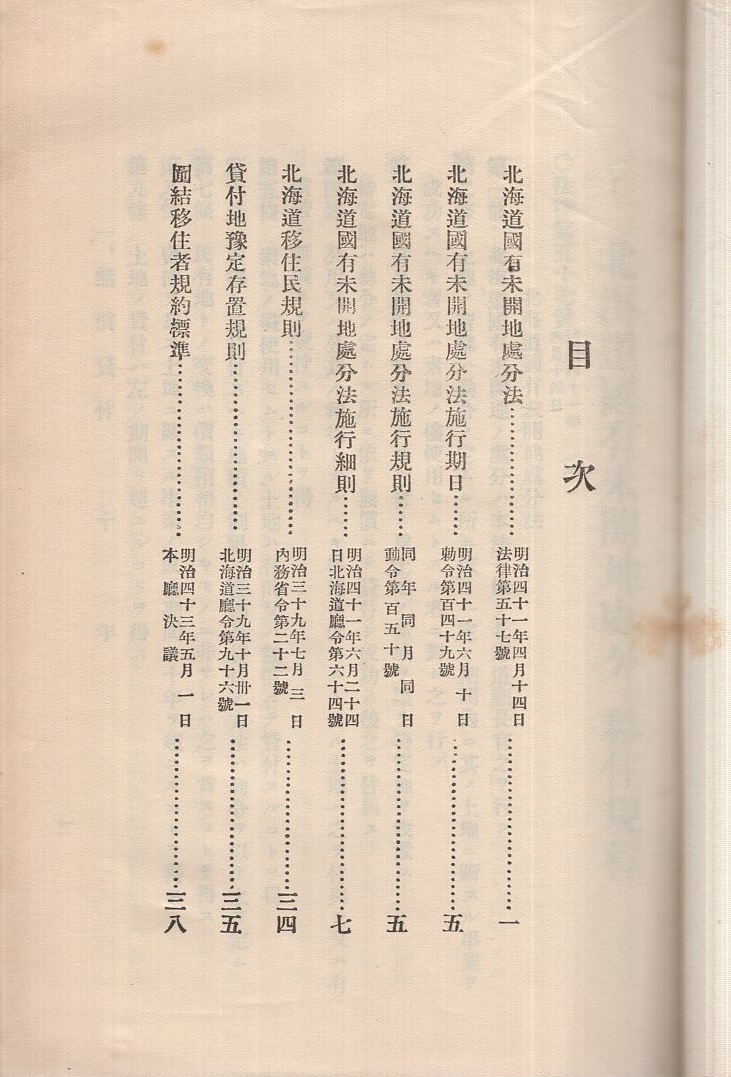 目次
北海道國有未開地處分法……………明治四十一年四月十四日法律第五十七號……………一
北海道國有未開地處分法施行期日……明治四十一年六月十日勅令第百四十九號……………五
北海道國有未開地處分法施行規則……同年同月同日勅令第百五十號……………五
北海道國有未開地處分法施行細則……明治四十一年六月二十四日北海道廳令第六十四號……………七
北海道移住民規則……………明治三十九年七月三日內務省令第二十二號……………三四
貸付地豫定存置規則……………明治三十九年十月卅一日北海道廳令第九十六號……………三五
團結移住者規約標準……………明治四十三年五月一日本廳決議……………三八